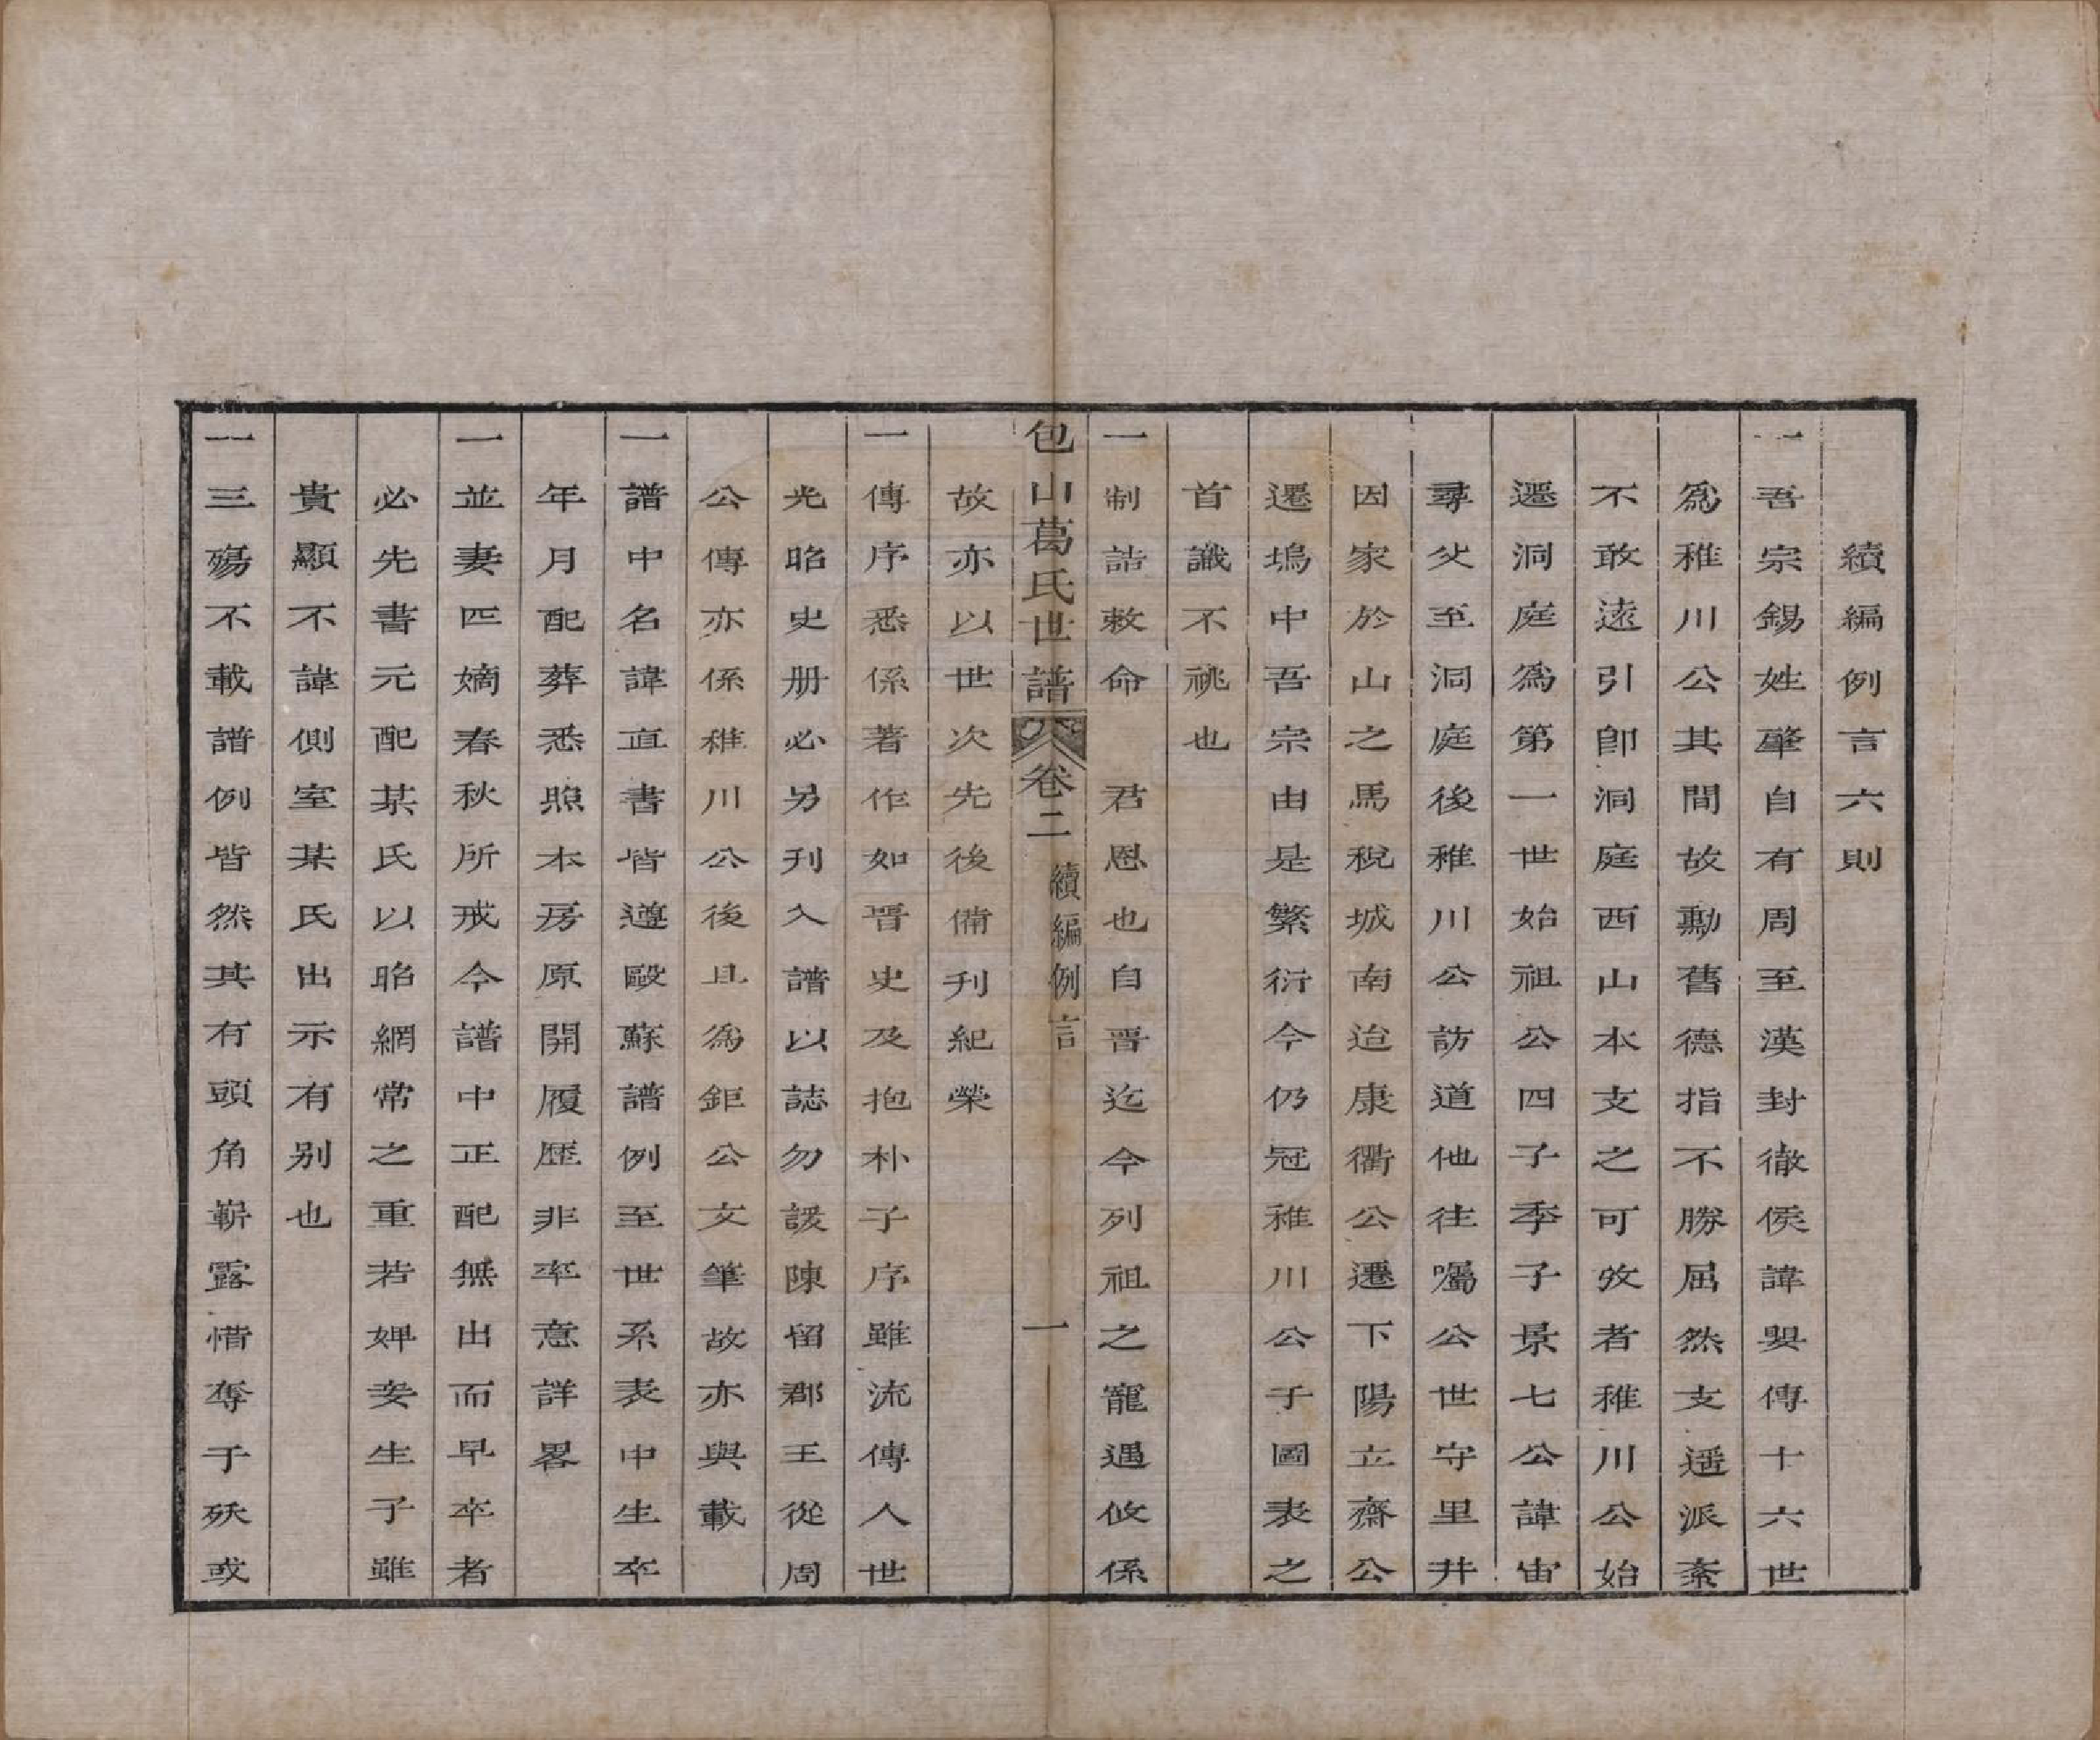 續編例言六則
一吾宗錫姓肇自有周至漢封徹侯諱嬰傳十六世
爲稚川公其間故勳舊德指不勝屈然支遥派紊
不敢遠引卽洞庭西山本支之可攷者稚川公始
遷洞庭爲第一世始祖公四子季子景七公諱宙
尋父至洞庭後稚川公訪道他往囑公世守里井
因家於山之馬稅城南迨康衢公遷下陽立齋公
遷塢中吾宗由是繁衍今仍冠稚川公于圖表之
首識不祧也
一制誥敕命　君恩也自晋迄今列祖之寵遇攸係
包山葛氏世譜　卷二　續編例言　一
故亦以世次先後備刋紀榮
一傳序悉係著作如晋史及抱朴子序雖流傳人世
光昭史册必另刋入譜以誌勿諼陳留郡王從周
公傳亦係稚川公後且爲鉅公文筆故亦與載
一譜中名諱直書皆遵歐蘇譜例至世系表中生卒
年月配葬悉照本房原開履歷非率意詳畧
一並妻匹嫡春秋所戒今譜中正配無出而早卒者
必先書元配某氏以昭網常之重若婢妾生子雖
貴顯不諱側室某氏出示有别也
一三殤不載譜例皆然其有頭角嶄露惜奪于殀或